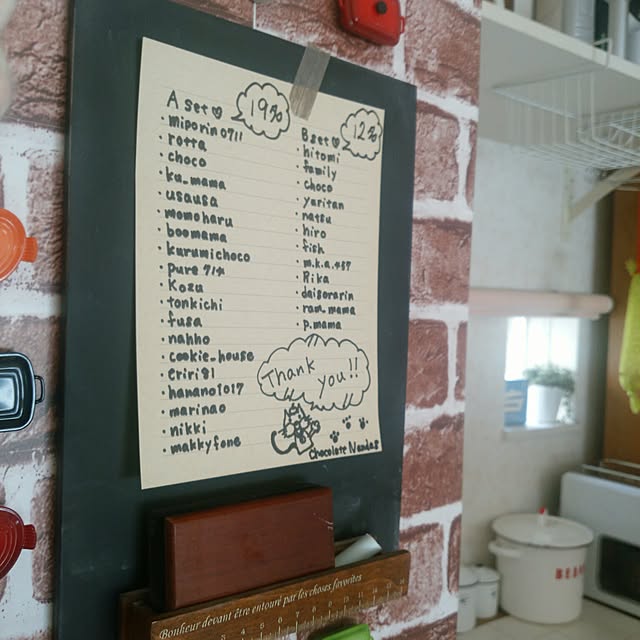 A set
19名
・miporin0711
・rotta
・choco
・ku_mama
・usausa
・momoharu
・boomama
・kurumichoco
・Kozu
・tonkichi
・fusa
・nahho
・cookie_house
・criri81
・hamano1017
・marinao
・nikki
・makkyfone
B set
12名
・hitomi
・family
・choco
・yuritan
・natsu
・hiro
・fish
・Rika
・daisorarin
・ram_mama
・p.mama
Thank you!!
Chocolate Nandas
Bonheur devant être entouré par les choses favorites